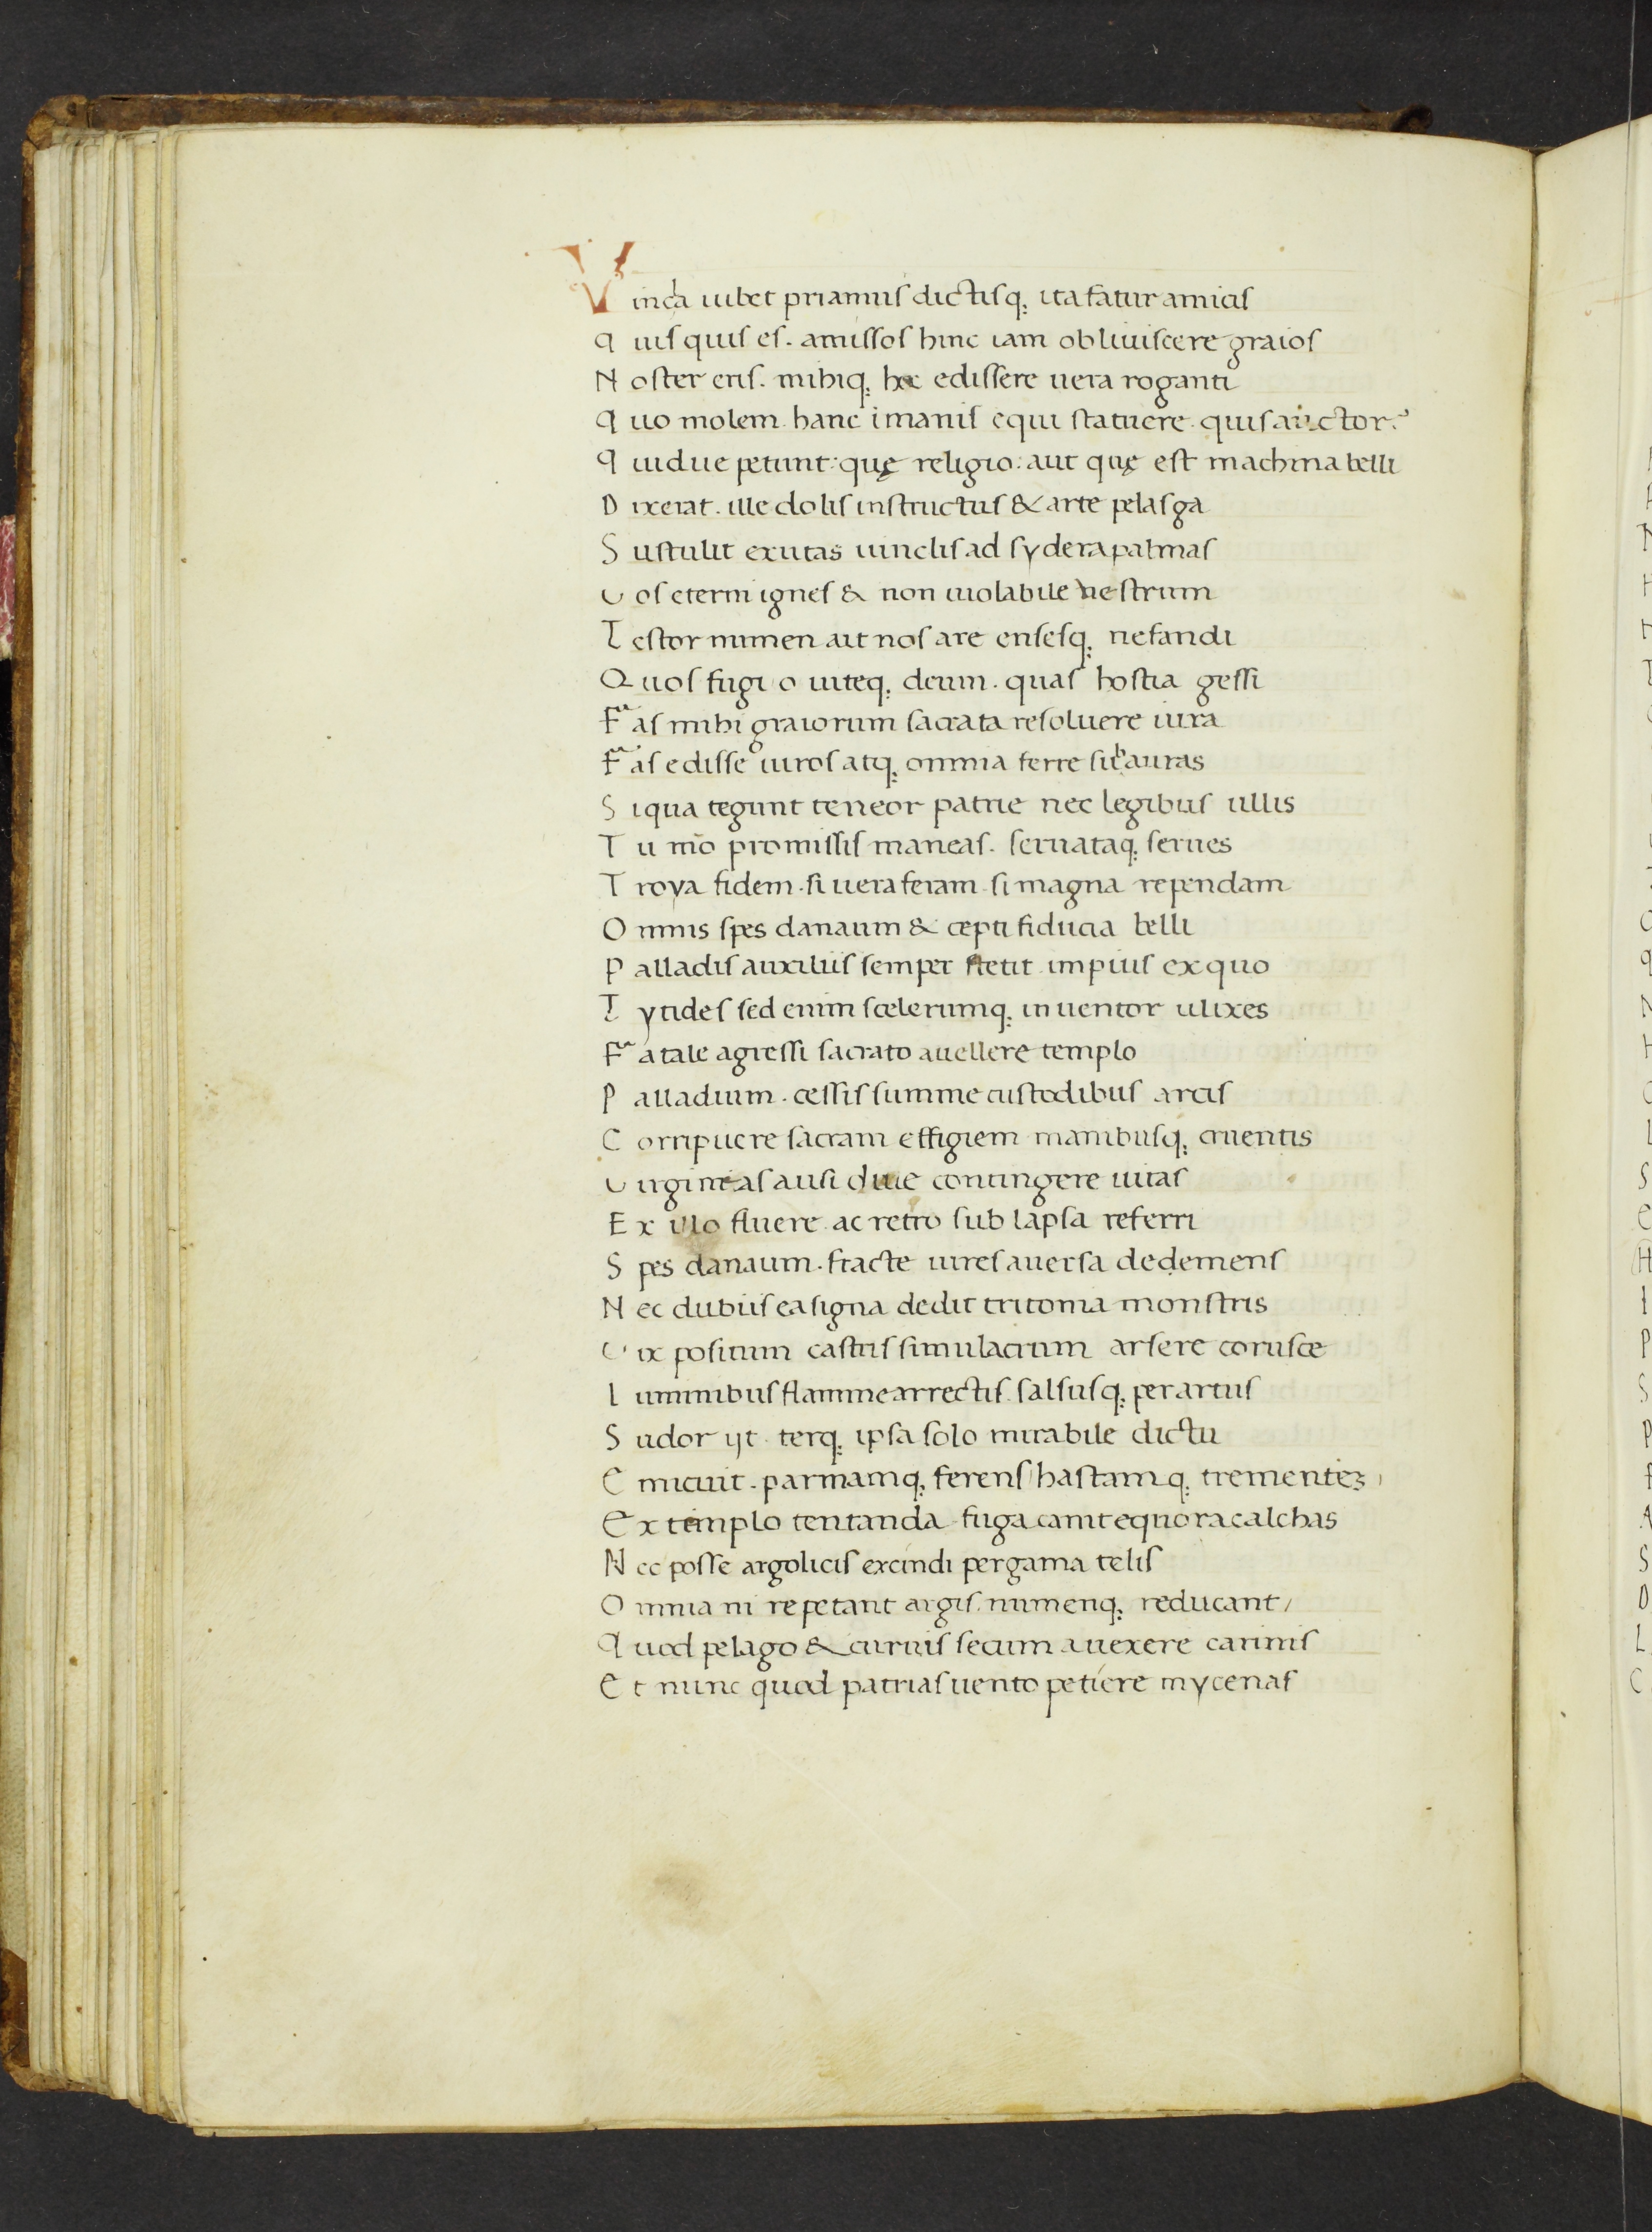 Vincla iubet priamus dictisq; ita fatur amicis
Quisquis es. amissos hinc iam obliuiscere graios
Noster eris. mihiq; hec edissere uera roganti
Quo molem hanc imanis equi statuere. quis auctor?
Quidue petunt: quę religio: aut quę est machina belli
Dixerat. ille dolis instructus & arte pelasga
Sustulit exutas uinclis ad sydera palmas
Vos eterni ignes & non uiolabile uestrum
Testor numen ait nos are ensesq; nefandi
Quos fugi o uiteq; deum. quas hostia gessi
Fas mihi graiorum sacrata resoluere iura
Fas edisse uiros atq; omnia ferre sub auras
Siqua tegunt teneor patrie nec legibus ullis
Tu mō promissis maneas. seruataq; serues
Troya fidem. si uera feram. si magna rependam
Omnis spes danaum & cepti fiducia belli
Palladis auxiliis semper stetit. impius ex quo
Tytides sed enim scelerumq; inuentor ulixes
Fatale agressi sacrato auellere templo
Palladium. cessis summe custodibus arcis
Corripuere sacram effigiem manibusq; cruentis
Virgineas ausi diue contingere uitas
Ex illo fluere ac retro sub lapsa referri
Spes danaum. fracte uires auersa dedemens
Nec dubiis ea signa dedit tritonia monstris
Vix positum castris simulacrum arsere corusce
Luminibus flamme arrectis. salsusq; per artus
Sudor ijt. terq; ipsa solo mirabile dictu
Emicuit. parmamq; ferens hastamq; trementeꝫ
Extemplo tentanda fuga canit equora calchas
Nec posse argolicis excindi pergama telis
Omnia ni repetant argis. numenq; reducant,
Quod pelago & curuis secum auexere carinis
Et nunc quod patrias uento petiere mycenas